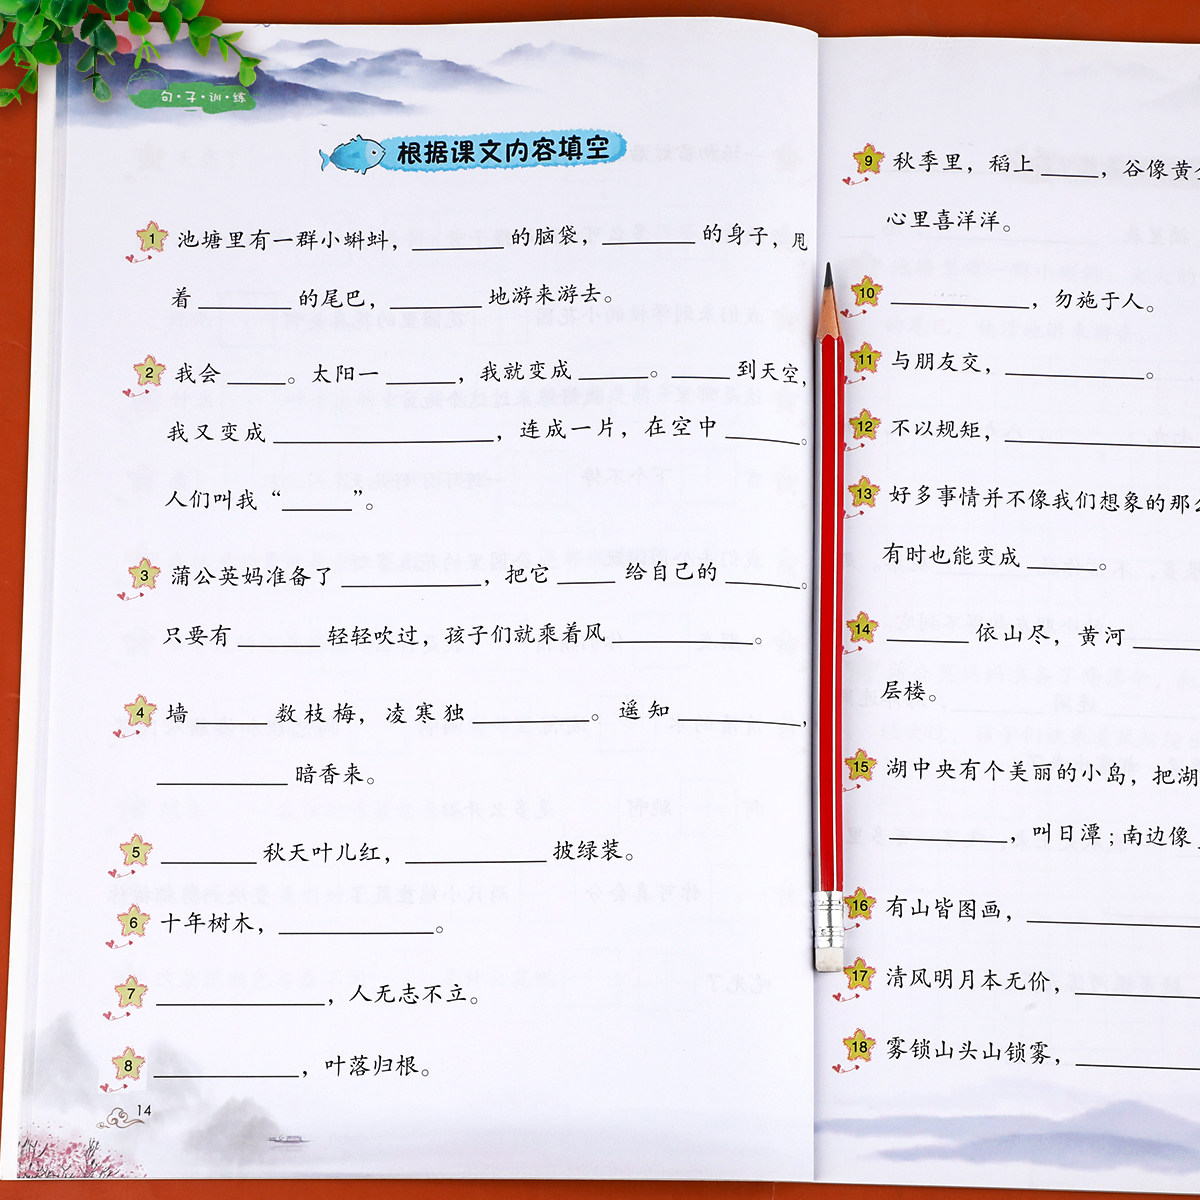 句·子·训·练
根据课文内容填空
1 池塘里有一群小蝌蚪，______的脑袋，______的身子，甩
着______的尾巴，______地游来游去。
2 我会____。太阳一____，我就变成____。____到天空，
我又变成____________，连成一片，在空中____。
人们叫我“____”。
3 蒲公英妈准备了________，把它____给自己的____。
只要有____轻轻吹过，孩子们就乘着风________。
4 墙____数枝梅，凌寒独______。遥知______，
______暗香来。
5 ______秋天叶儿红，________披绿装。
6 十年树木，________。
7 ________，人无志不立。
8 ________，叶落归根。
14
9 秋季里，稻上____，谷像黄
心里喜洋洋。
10 ________，勿施于人。
11 与朋友交，________。
12 不以规矩，________
13 好多事情并不像我们想象的那
有时也能变成____。
14 ____依山尽，黄河____
层楼。
15 湖中央有个美丽的小岛，把湖
______，叫日潭；南边像
16 有山皆图画，________
17 清风明月本无价，________
18 雾锁山头山锁雾，________